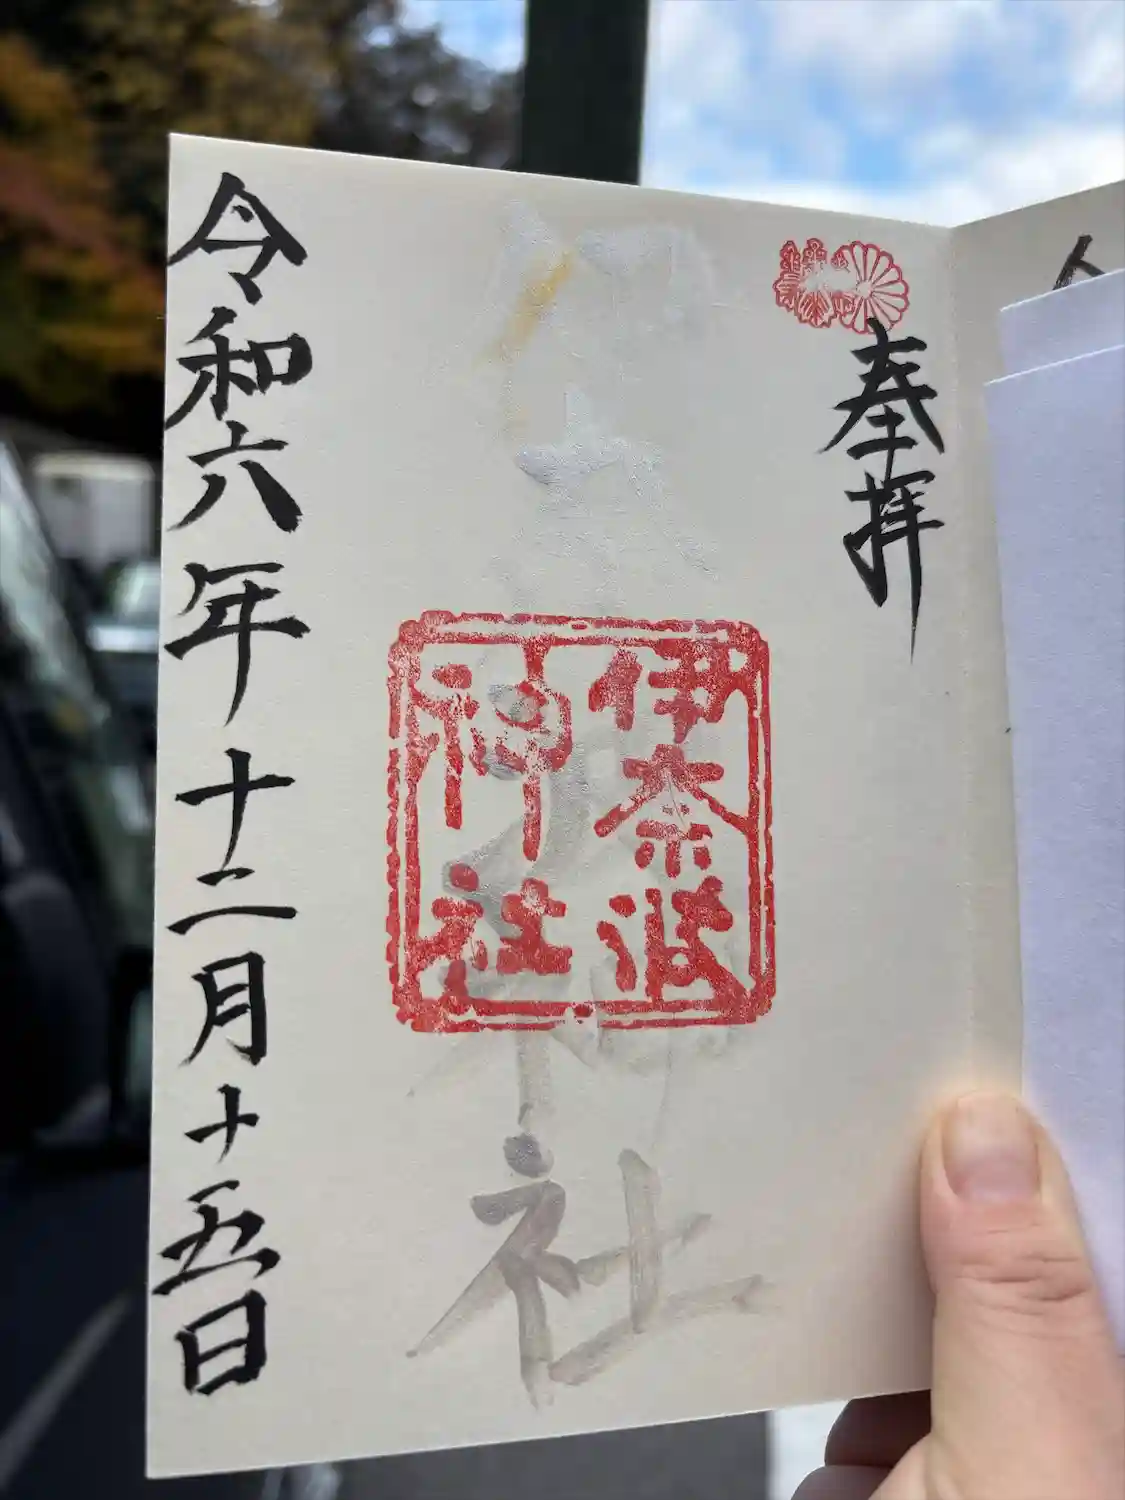 奉拝
伊奈波
神社
神社
令和六年十二月十五日